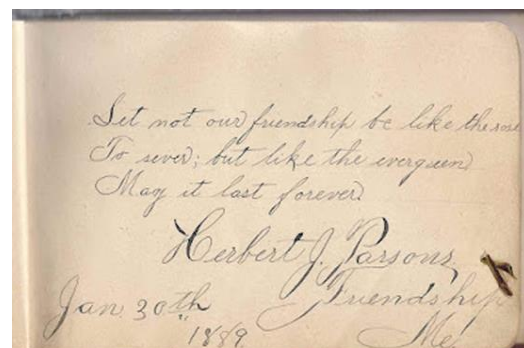 Let not our friendship be like the rose
To sever; but like the evergreen
May it last forever.
Herbert J. Parsons,
Friendship
Jan. 30th
Me.
1889